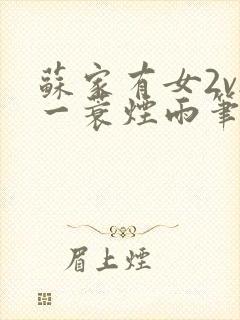 蘇家有女2v
一蓑煙雨筆
眉上煙